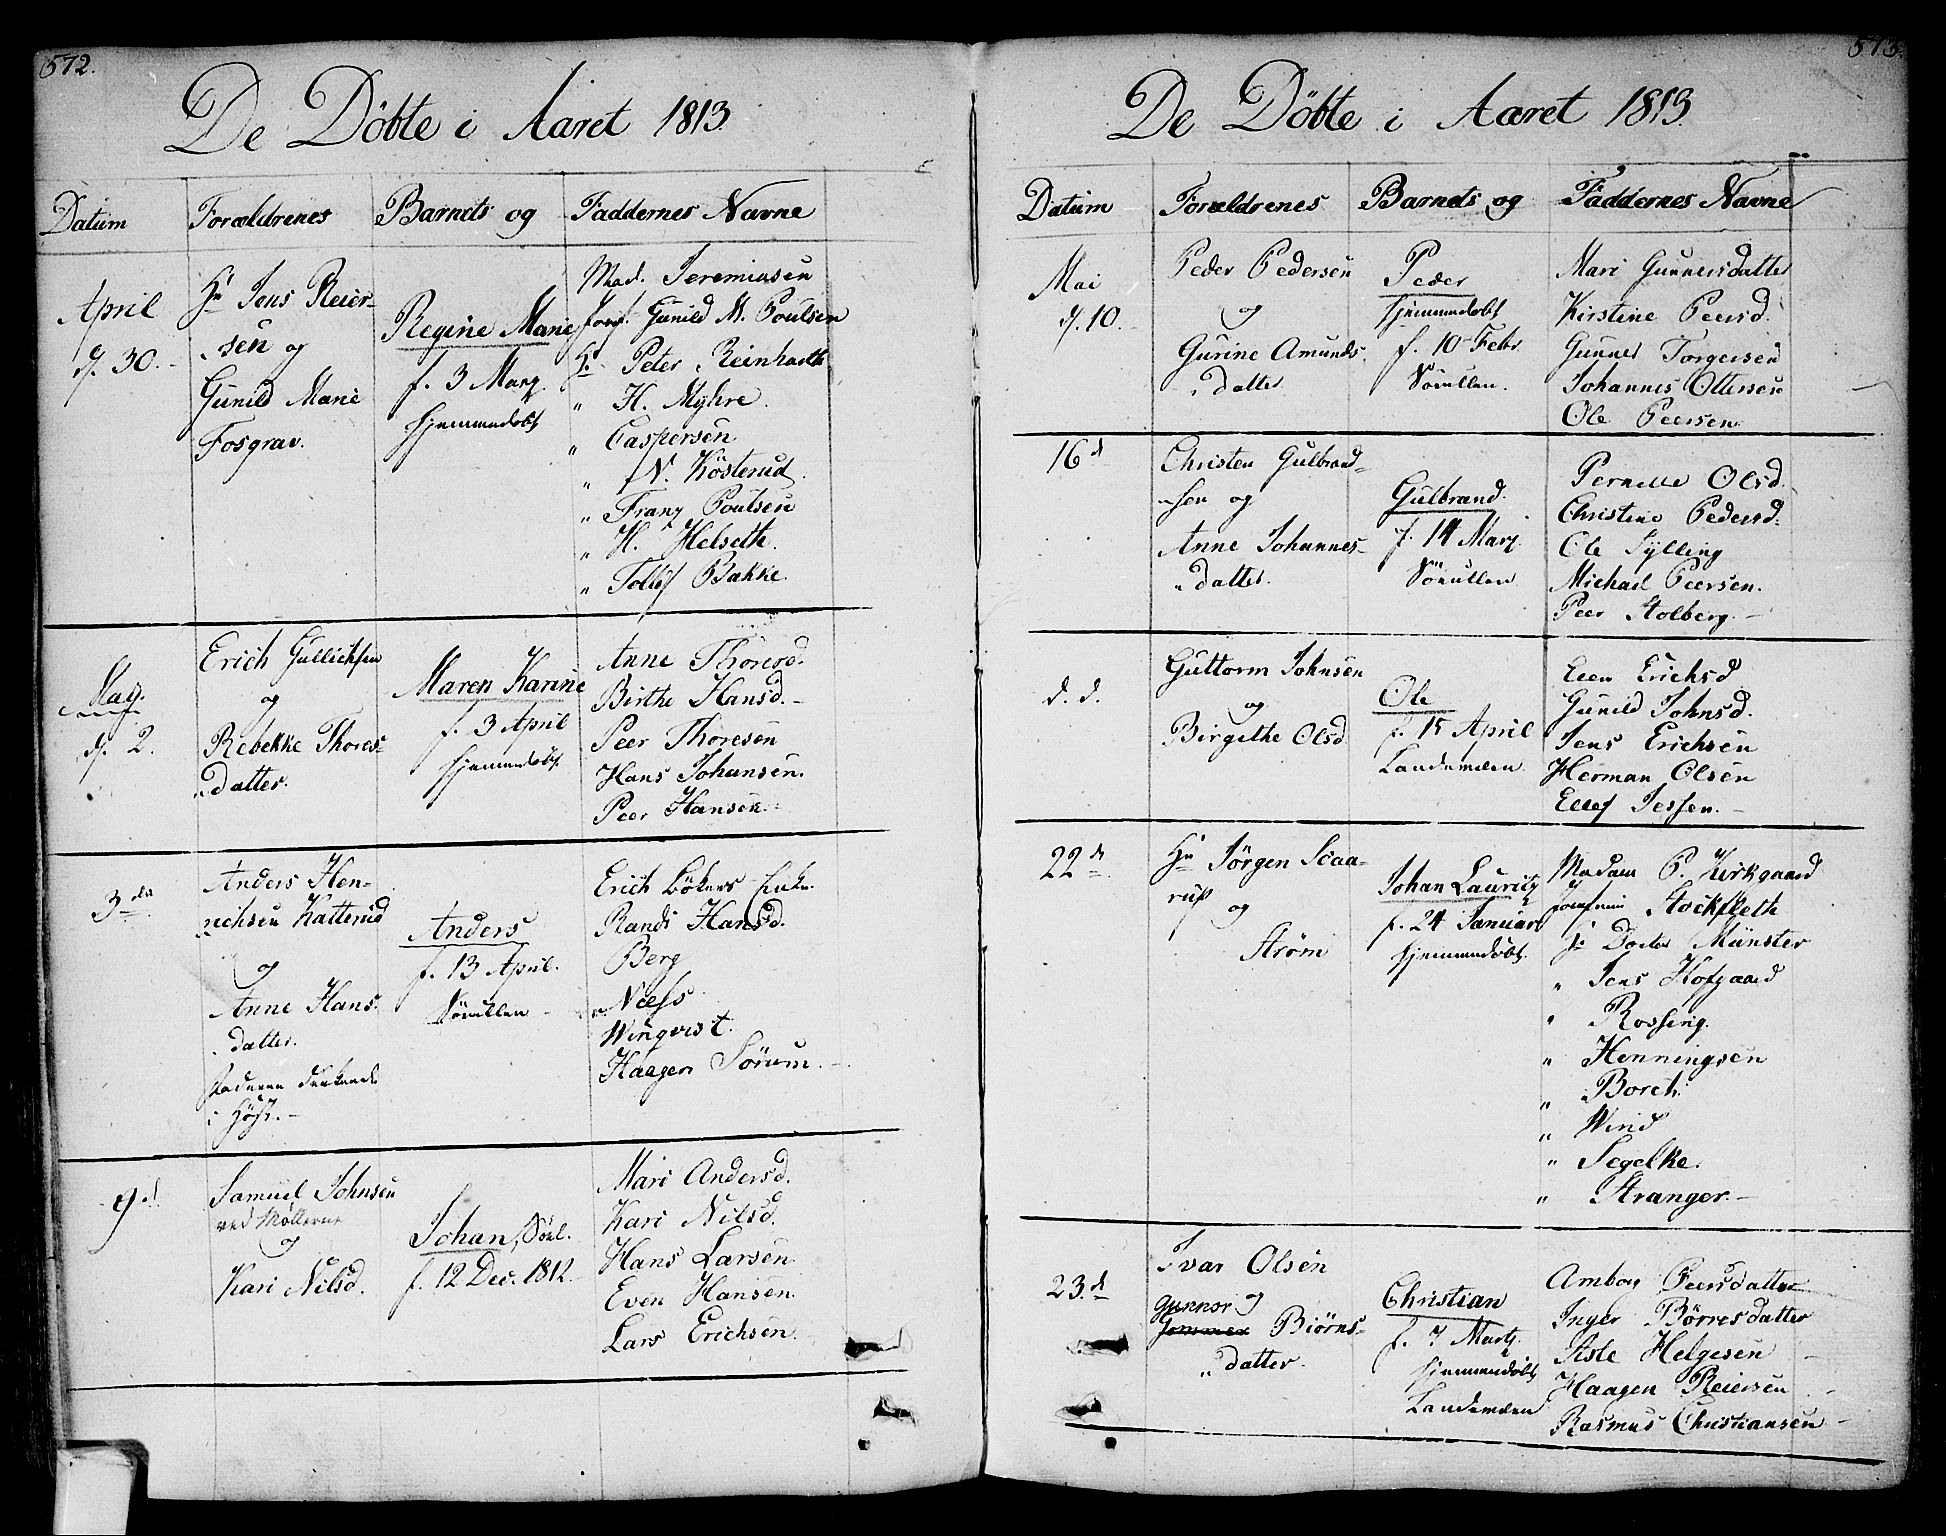 572.
De Döbte i Aaret 1813.
Datum Forældrenes Barnets og Faddernes Navne
April
d. 30.
Hr Jens Reier-
sen og
Gunild Marie
Fosgrav.
Regine Marie
f. 3 Marz.
hjemmedøbt
Mad. Jeremiasen
Jomf. Gunild M. Poulsen
Hr. Peter Reinhardt
" H. Myhre.
" Caspersen
" N. Kösterud.
" Franz Poulsen
" H. Helseth.
" Tollef Bakke.
May.
d. 2.
Erich Gullichsen
og
Rebekke Thores-
datter.
Maren Karine
f. 3 April
hjemmedøbt
Anne Thoresd.
Birthe Hansd.
Peer Thoresen
Hans Johansen.
Peer Hansen.
3die
Anders Hen-
richsen Katterud
og
Anne Hans-
datter.
i Høst.
Anders
f. 13 April.
Sörullen
Erich Bökers Enke.
Randi Hansd.
Berg
Niels
Winqvist.
Haagen Sörum.
9d.
Samuel Johnsen
ved Møllerne
og
Kari Nilsd.
Johan, Sörl.
f. 12 Dec. 1812.
Mari Andersd.
Kari Nilsd.
Hans Larsen
Even Hansen.
Lars Erichsen.
573.
De Döbte i Aaret 1813.
Datum Forældrenes Barnets og Faddernes Navne
Mai
d. 10.
Peder Pedersen
og
Gurine Amunds-
datter.
Peder
hjemmedøbt
f. 10 Febr.
Sörullen.
Mari Gunnersdatter
Kirstine Peersd.
Gunner Torgersen
Johannes Ottersen
Ole Peersen
16d
Christen Gulbrand-
sen og
Anne Johannes-
datter.
Gulbrand.
f. 14 Marz.
Sörullen
Pernille Olsd.
Christine Pedersd.
Ole Sylling
Michael Peersen.
Peer Stolberg.
d. d.
Guttorm Johnsen
og
Birgithe Olsd.
Ole
f. 15 April
Landeværn.
Elen Erichsd
Gunild Johnsd.
Jens Erichsen
Herman Olsen
Ellef Jessen.
22d.
Hr Jörgen Scaa-
rup
og
Strøm
Johan Lauritz
f. 24 Januar
hjemmedøbt
Madam P. Kirkgaard
Jomfrue Stockfleth
Hr Doctor Münster
" Jens Hofgaard
" Rossing.
" Henningsen
" Borch.
" Wind
" Segelke.
" Stranger.
23.d
Ivar Olsen
Gunnor og
Biörns-
datter.
Christian
f. 7 Martz.
hjemmedøbt
Landeværn
Ambog Peersdatter
Inger Börresdatter
Asle Helgesen
Haagen Reiersen
Rasmus Christiansen